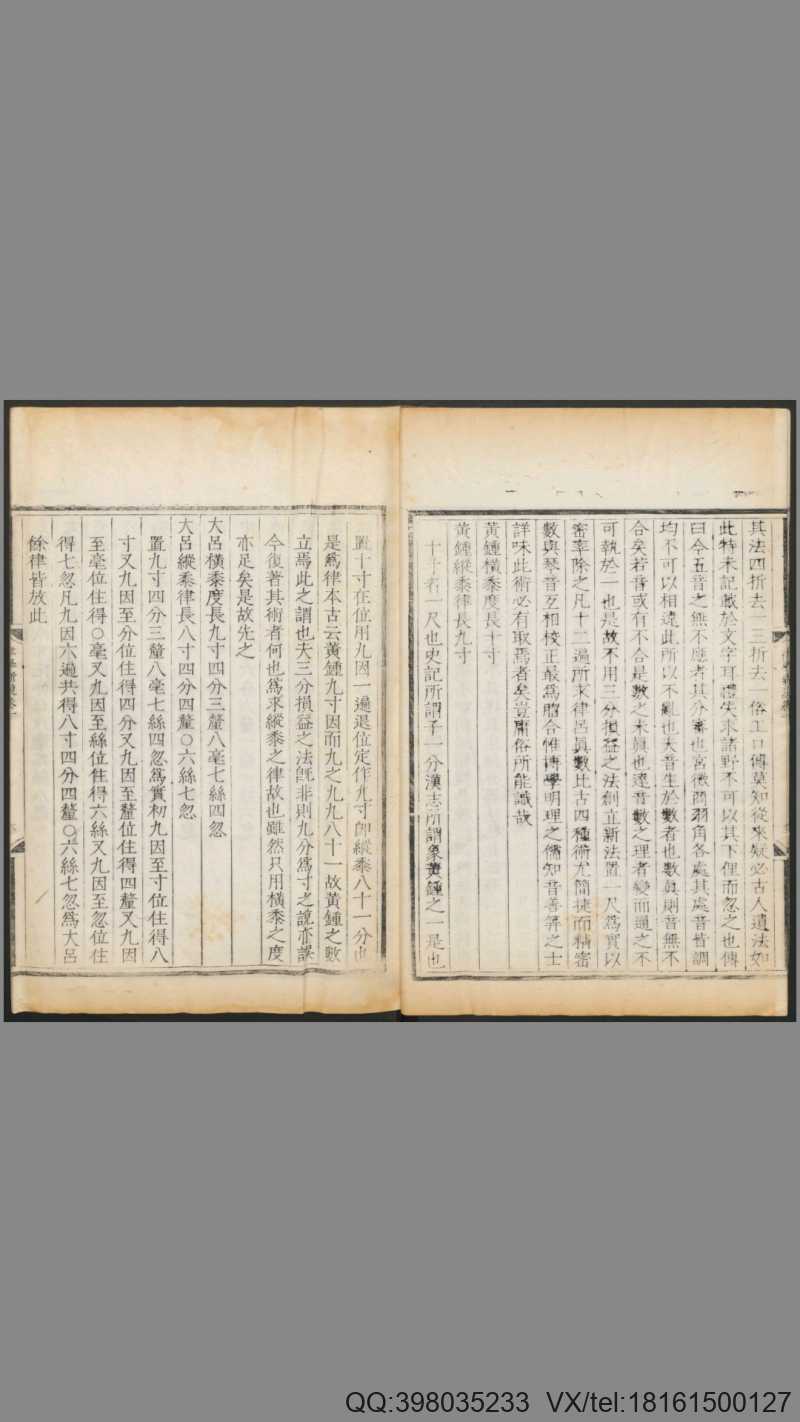 其法四折去一三折去一俗工口傳莫知從來疑必古人遺法如
此特未記載於文字耳禮失求諸野不可以其下俚而忽之也傳
曰今五音之無不應者其分審也宮徵商羽角各處其處音皆調
均不可以相違此所以不亂也夫音生於數者也數真則音無不
合矣若音或有不合是數之未真也達音數之理者變而通之不
可執於一也是故不用三分損益之法創立新法置一尺爲實以
密率除之凡十二遍所求律呂眞數比古四種術尤簡捷而精密
數與琴音互相校正最爲脗合惟博學明理之儒知音善筭之士
詳味此術必有取焉者矣豈庸俗所能識哉
黃鍾橫黍度長十寸
黃鍾縱黍律長九寸
十寸者一尺也史記所謂子一分漢志所謂象黃鍾之一是也
置十寸在位用九因一遍退位定作九寸卽縱黍八十一分也
是爲律本古云黃鍾九寸因而九之九九八十一故黃鍾之數
立焉此之謂也夫三分損益之法旣非則九分爲寸之說亦誤
今復著其術者何也爲求縱黍之律故也雖然只用橫黍之度
亦足矣是故先之
大呂橫黍度長九寸四分三釐八毫七絲四忽
大呂縱黍律長八寸四分四釐〇六絲七忽
置九寸四分三釐八毫七絲四忽爲實初九因至寸位住得八
寸又九因至分位住得四分又九因至釐位住得四釐又九因
至毫位住得〇毫又九因至絲位住得六絲又九因至忽位住
得七忽凡九因六遍共得八寸四分四釐〇六絲七忽爲大呂
餘律皆放此
QQ:398035233 VX/tel:18161500127